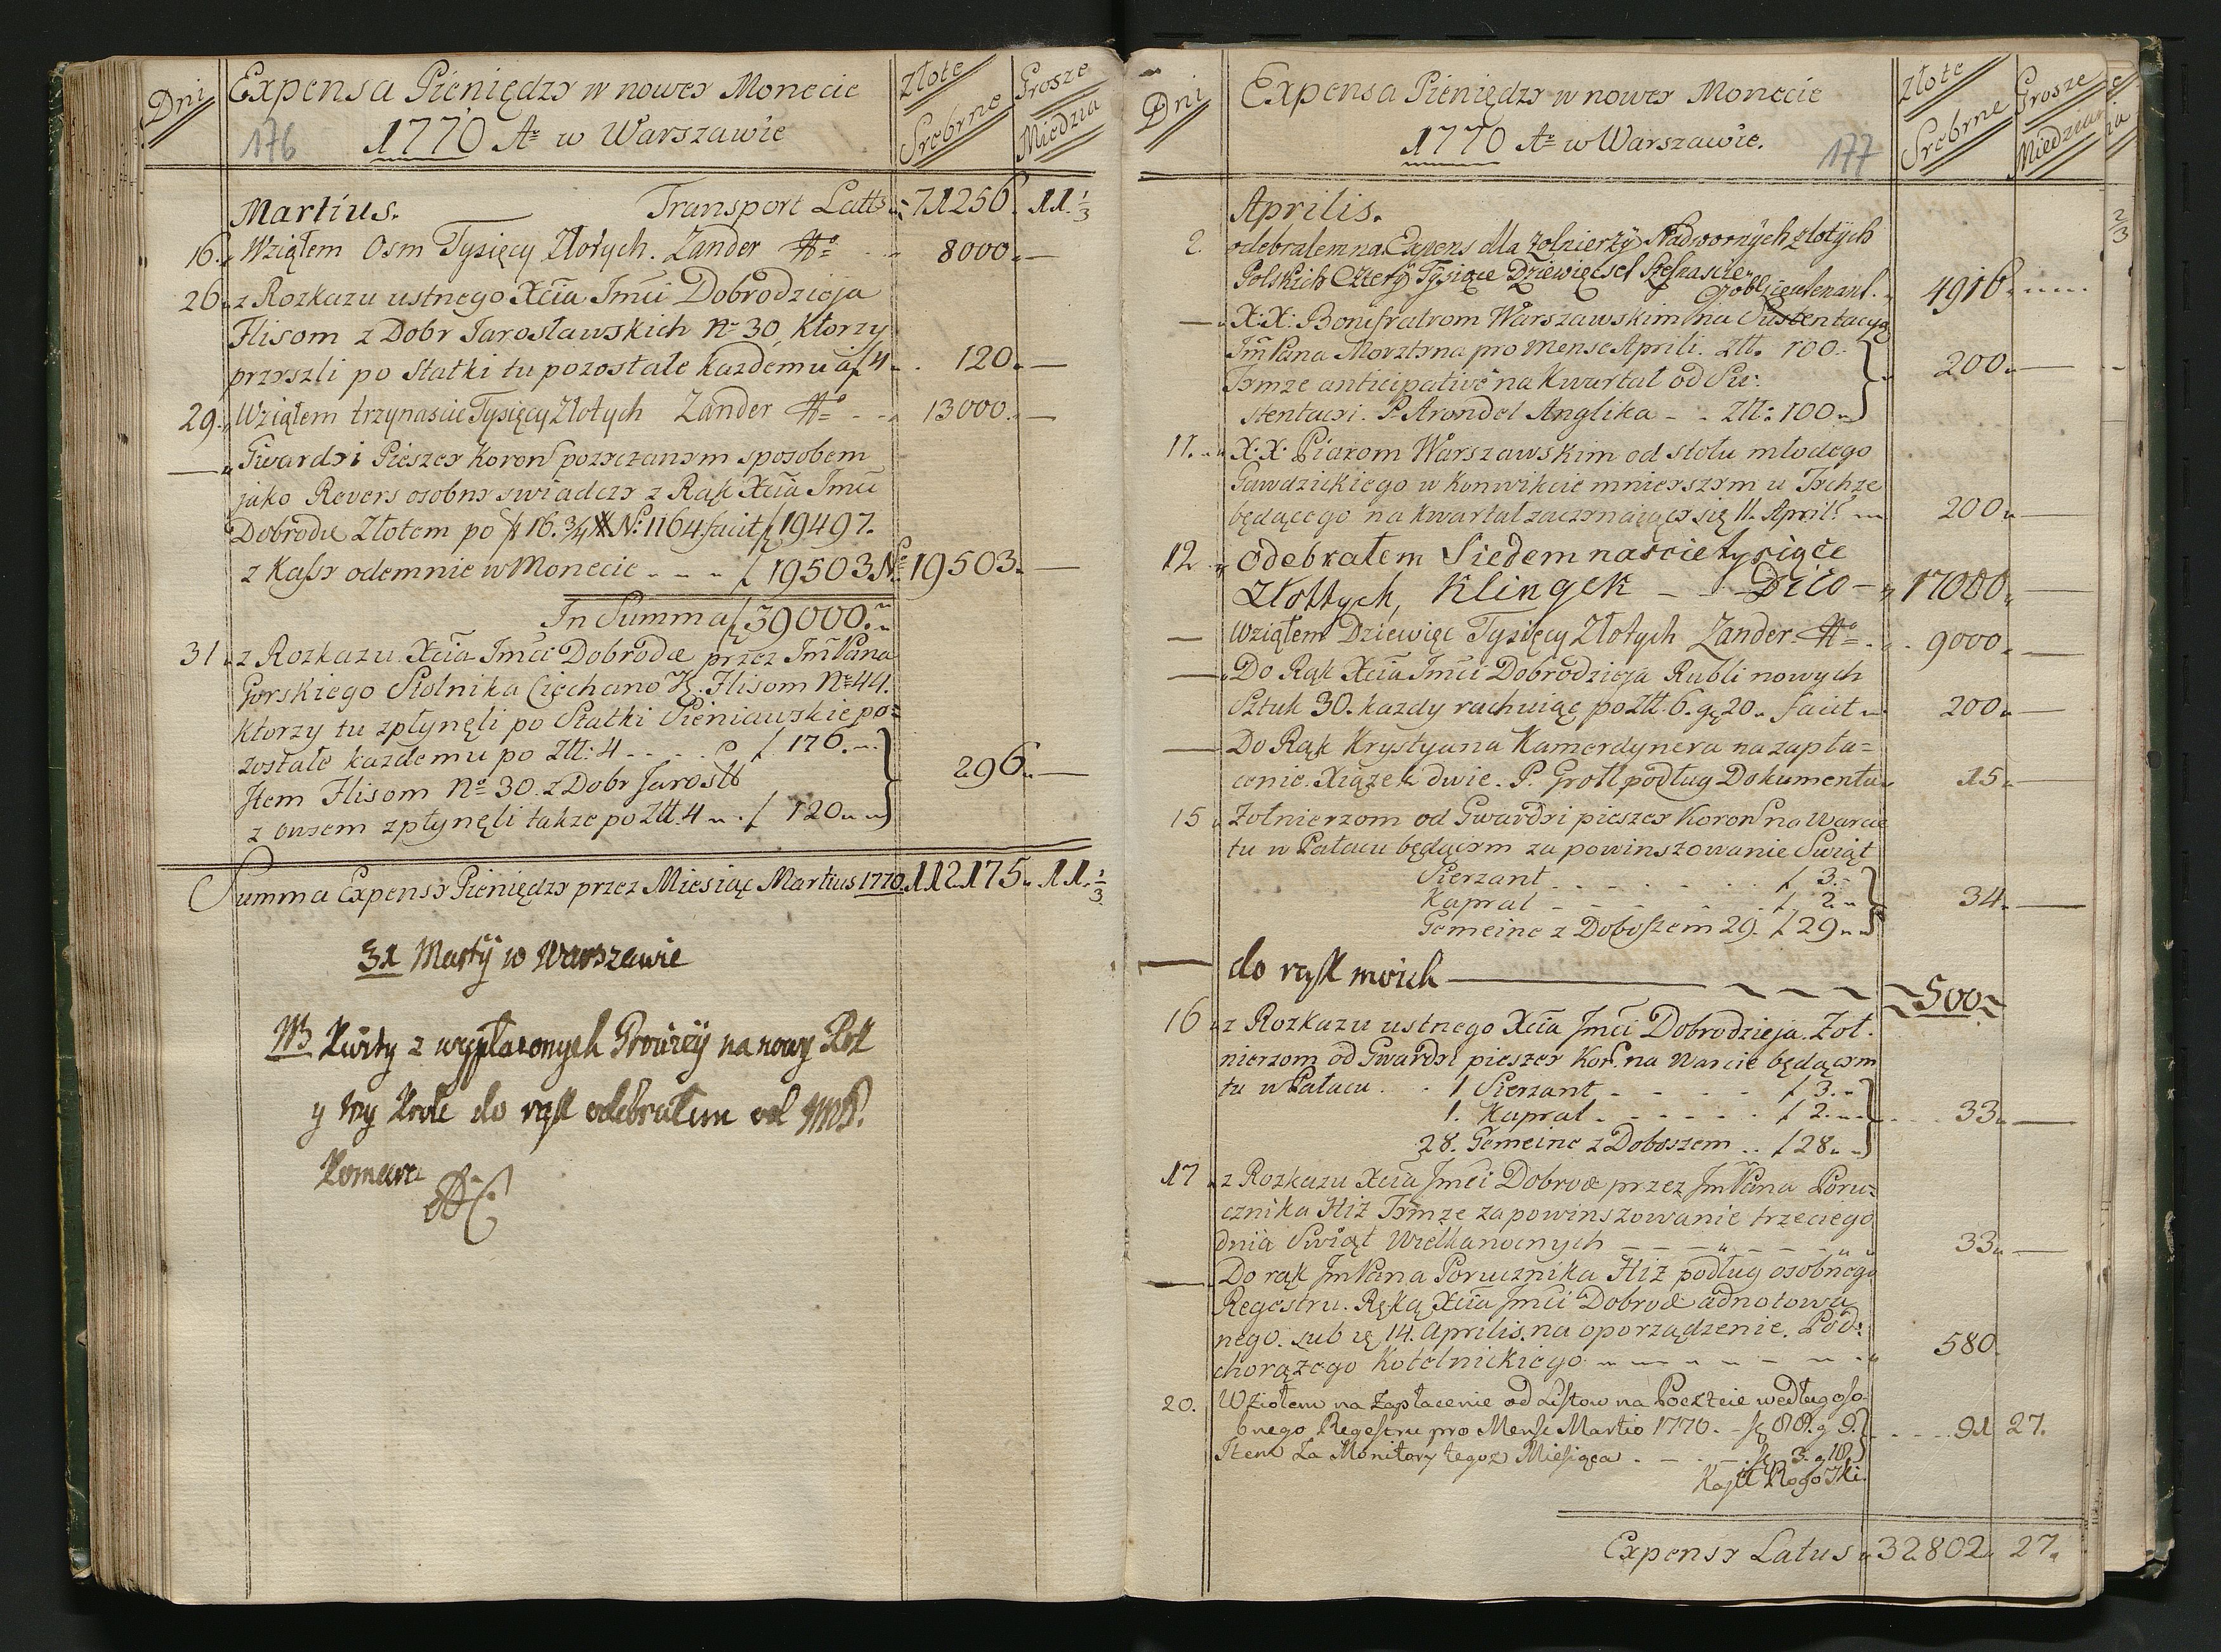 Dni
Expensa Pieniędzy w nowey Monecie
Złote Srebrne
Grosze Miedzia
176
1770 Ao w Warszawie
Martius. Transport Latts 71256. 11. 1/3
16. Wziąłem Osm Tysięcy Złotych. Zander 8000. —
26. z Rozkazu ustnego Xcia Jmci Dobrodzieja
Flisom z Dobr Jarosławskich No 30, Ktorzy
przyszli po Statki tu pozostałe każdemu a f 4 120. —
29. Wziąłem trzynascie Tysięcy Złotych Zander 13000. —
— Gwardyi Pieszey Koron pozyczanym sposobem
jako Revers osobny swiadczy z Rąk Xcia Jmci
Dobrodie Złotem po f 16. 3/4 No. 1164. facit f 19497.
z Kassy odemnie w Monecie - - - f 19503 No 19503. —
In Summa f 39000.
31. z Rozkazu Xcia Jmci Dobrodie przez JmPana
Gorskiego Stolnika Ciechano Flisom No 44.
Ktorzy tu zpłynęli po Statki Sieniawskie po=
zostałe każdemu po Złł: 4 - - - - f 176.
Item Flisom No 30. z Dobr Jarosł 296. —
z owsem zpłynęli także po Złł. 4 f 120
Summa Expensy Pieniędzy przez Miesiąc Martius 1770. 112175. 11. 1/3
31 Martij w Warszawie
NB Kwity z wypłaconych Prowizij na nowy Rok
y try Krole do rąk odebrałem od JMP.
Komara
Dni
Expensa Pieniędzy w nowey Monecie
Złote Srebrne
Grosze Miedzian
177
1770 Ao w Warszawie.
2/3
Aprilis.
2. odebralem na Expens dla Zolnierzÿ Nadwornÿch złotÿch
Polskich Czterÿ Tÿsiące Dziewięcset Szesnascie
Oberlieutenant. 4916.
— X:X: Bonifratrom Warszawskim na Sustentacyą
JmPana Morztyna pro Mense Aprili. Złł. 100.
Tymze anticipative na Kwartał od Su- 200. —
stentacyi. P. Arondel Anglika - - Złł: 100
11. X:X: Piarom Warszawskim od stołu młodego
Gawdzickiego w Konwikcie mnieyszym u Tychze
będącego na kwartał zaczynaiący się 11. April: 200. —
12. odebrałem Siedemnascie tysiące
Złottych, Klingek - - Dito - 17000. —
— Wziąłem Dziewięc Tysięcy Złotych Zander 9000. —
— Do Rąk Xcia Jmci Dobrodzieja Rubli nowych
Sztuk 30. każdy rachuiąc po Złł. 6. g 20. facit 200. —
— Do Rąk Krystyana Kamerdynera na zapła=
cenie Xiążek dwie. P. Gröll podług Dokumentu 15. —
15. Żołnierzom od Gwardyi pieszey Koron na Warcie
tu w Pałacu będącym za powinszowanie Swiąt
Sierzant f 3.
Kapral f 2. 34. —
Gemeine z Doboszem 29. f 29
— do rąk moich — 500
16. z Rozkazu ustnego Xcia Jmci Dobrodzieja. Żoł-
nierzom od Gwardyi pieszey Kor. na Warcie będącym
tu w Pałacu 1 Sierzant f 3.
1. Kapral f 2. 33. —
28. Gemeine z Doboszem f 28
17. z Rozkazu Xcia Jmci Dobrodie przez JmPana Poru=
cznika Hiż Tymze za powinszowanie trzeciego
dnia Swiąt Wielkanocnych 33. —
— Do rąk JmPana Porucznika Hiż podług osobnego
Regestru. Ręką Xcia Jmci Dobrodie adnotowa
nego. sub 14. Aprilis. na oporządzenie. Pod=
chorążego Kotelnickiego 580.
20. Wziołem na Zapłacenie od Listow na Poczcie według oso-
bnego Regestru pro Mense Martio 1770. f 88. g 9. 91 27.
Item Za Monitory tegoz Miesiąca f 3. g 18
Kajet Rogoski
Expensy Latus 32802. 27.